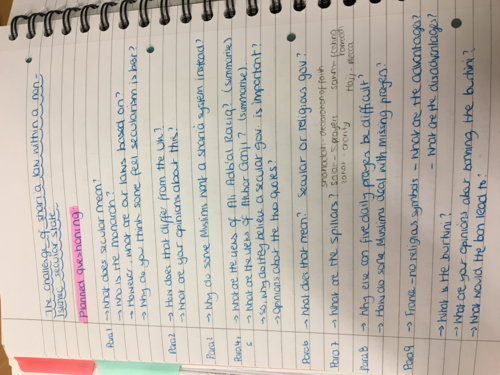 The challenge of sharia law within a non-
Islamic secular state
Planned questioning
Para 1 → What does secular mean?
→ Who is the monarch?
→ However, what are our laws based on?
→ Why do you think some feel secularism is best?
Para 2 → How does that differ from the UK?
→ What are your opinions about this?
Para 3 → Why do some Muslims want a sharia system instead?
Para 4, → What are the views of Ali Adb'al Raziq? (summarise)
5 → What are the views of Akbar Ganji? (summarise)
→ So why do they believe a secular gov is important?
→ Opinions about the two quotes?
Para 6 → What does that mean? Secular or religious gov?
Para 7 → What are the 5 pillars? shahadah - declaration of faith sawm - fasting
salat - 5 prayers ramadan
zakat - charity Hajj - Mecca
Para 8 → Why else can five daily prayers be difficult?
→ How do some Muslims deal with missing prayers?
Para 9 → France - no religious symbols - What are the advantages?
- What are the disadvantages?
→ What is the burkini?
→ What are your opinions about banning the burkini?
→ What would the ban lead to?